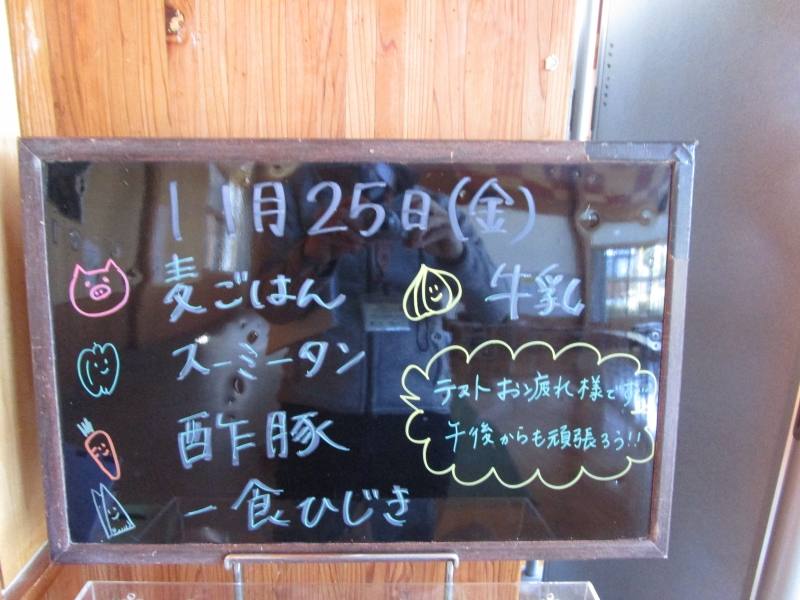 11月25日(金)
麦ごはん
スーミータン
酢豚
一食ひじき
牛乳
テストおつ疲れ様です…
午後からも頑張ろう!!